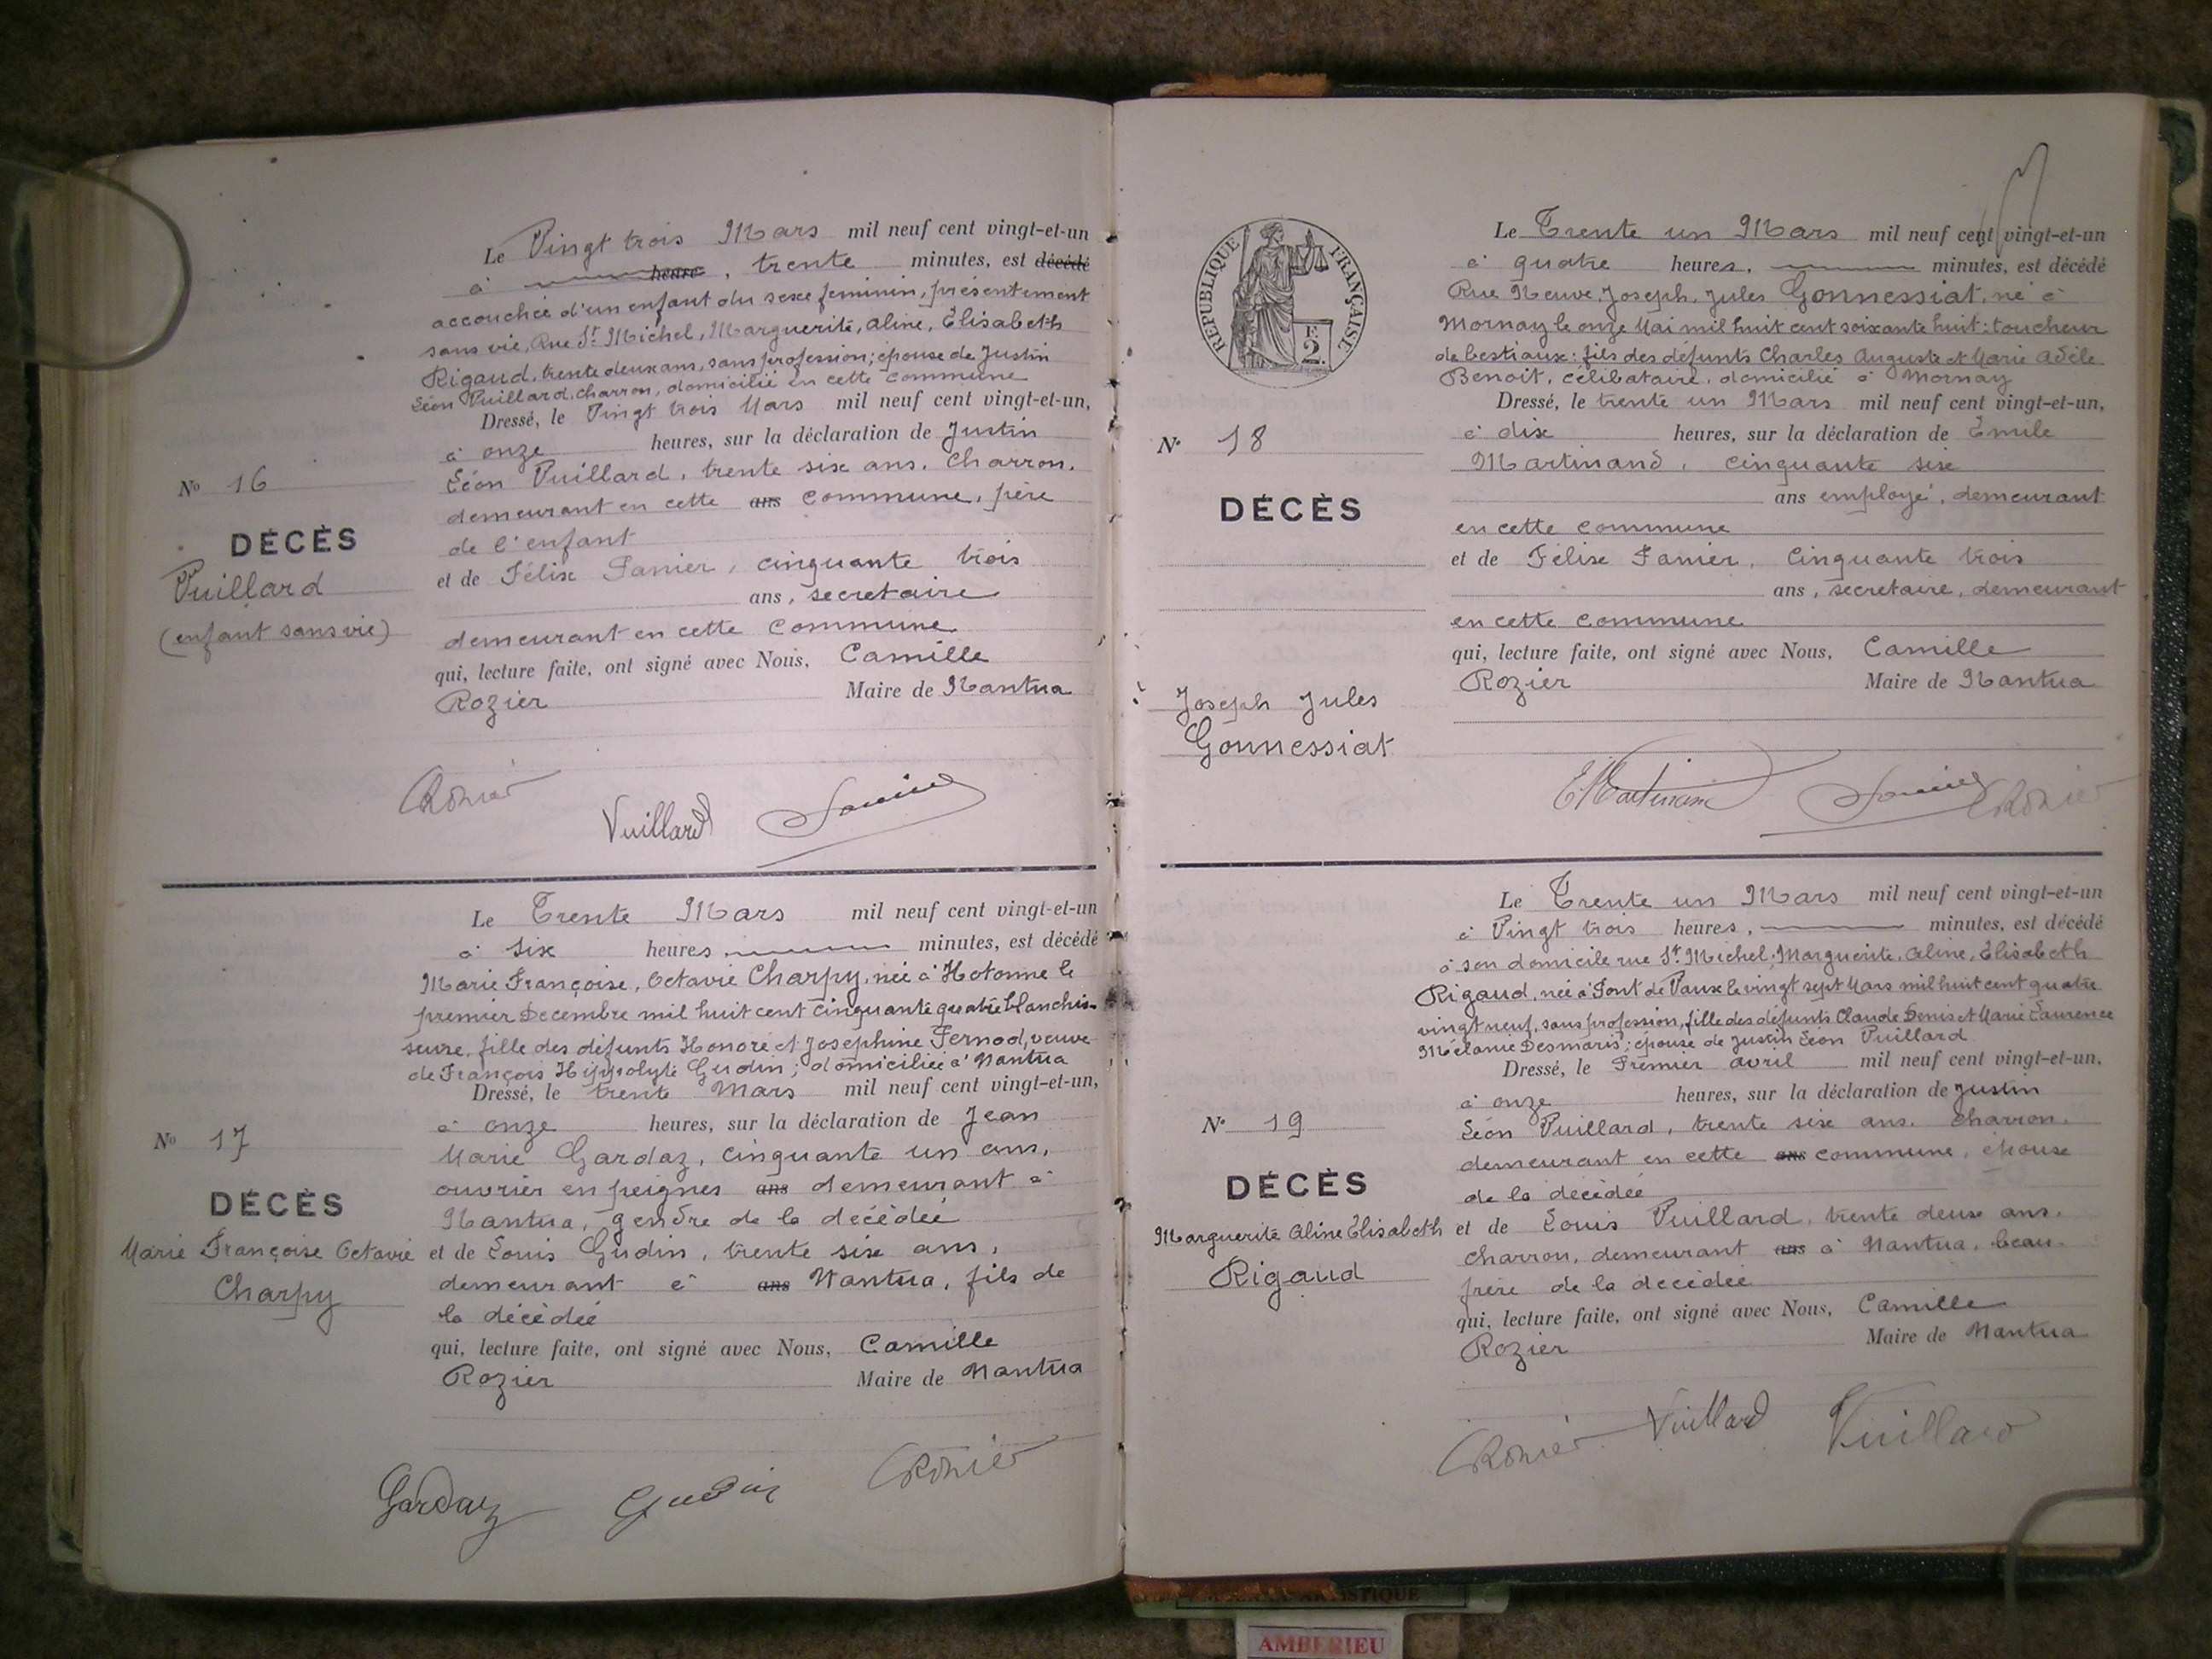 Le Vingt trois Mars mil neuf cent vingt-et-un
à heure, trente minutes, est décédé
accouchée d'un enfant du sexe feminin, présentement
sans vie, Rue St Michel, Marguerite, Aline, Élisabeth
Rigaud, trente deux ans, sans profession; épouse de Justin
Léon Vuillard, charron, domicilié en cette commune
Dressé, le Vingt trois Mars mil neuf cent vingt-et-un,
à onze heures, sur la déclaration de Justin
Léon Vuillard, trente six ans, charron,
demeurant en cette ans commune, père
de l'enfant
et de Félix Janier, cinquante trois
ans, secretaire
demeurant en cette commune
qui, lecture faite, ont signé avec Nous, Camille
Rozier Maire de Nantua
No 16
DÉCÈS
Vuillard
(enfant sans vie)
CRozier Vuillard Janier
Le Trente Mars mil neuf cent vingt-et-un
à six heures minutes, est décédé
Marie Françoise, Octavie Charpy, née à Hotonne le
premier Decembre mil huit cent cinquante quatre blanchis-
seuse, fille des défunts Honoré et Josephine Fernod, veuve
de François Hippolyte Gudin; domiciliée à Nantua
Dressé, le trente Mars mil neuf cent vingt-et-un,
à onze heures, sur la déclaration de Jean
Marie Gardaz, cinquante un ans,
ouvrier en peignes ans demeurant à
Nantua, gendre de la décédée
et de Louis Gudin, trente six ans,
demeurant à ans Nantua, fils de
la décédée
qui, lecture faite, ont signé avec Nous, Camille
Rozier Maire de Nantua
No 17
DÉCÈS
Marie Françoise Octavie
Charpy
Gardaz Gudin CRozier
RÉPUBLIQUE FRANÇAISE
2
Le Trente un Mars mil neuf cent vingt-et-un
à quatre heures, minutes, est décédé
Rue Neuve, Joseph, Jules Gonnessiat, né à
Mornay le onze Mai mil huit cent soixante huit: toucheur
de bestiaux: fils des défunts Charles Auguste et Marie Adèle
Benoit, célibataire, domicilié à Mornay
Dressé, le trente un Mars mil neuf cent vingt-et-un,
à dix heures, sur la déclaration de Émile
Martinand, cinquante six
ans employé, demeurant
en cette commune
et de Félix Janier, Cinquante trois
ans, secretaire, demeurant
en cette commune
qui, lecture faite, ont signé avec Nous, Camille
Rozier Maire de Nantua
No 18
DÉCÈS
Joseph Jules
Gonnessiat
EMartinand Janier CRozier
Le Trente un Mars mil neuf cent vingt-et-un
à Vingt trois heures, minutes, est décédé
à son domicile rue St Michel, Marguerite, Aline, Elisabeth
Rigaud, née à Pont de Vaux le vingt sept Mars mil huit cent quatre
vingt neuf, sans profession, fille des défunts Claude Denis et Marie Laurence
Mélanie Desmaris; épouse de Justin Léon Vuillard
Dressé, le Premier avril mil neuf cent vingt-et-un,
à onze heures, sur la déclaration de Justin
Léon Vuillard, trente six ans, charron,
demeurant en cette ans commune, époux
de la décédée
et de Louis Vuillard, trente deux ans,
charron, demeurant ans à Nantua, beau-
frère de la décédée
qui, lecture faite, ont signé avec Nous, Camille
Rozier Maire de Nantua
No 19
DÉCÈS
Marguerite Aline Elisabeth
Rigaud
CRozier Vuillard Vuillard
AMBERIEU